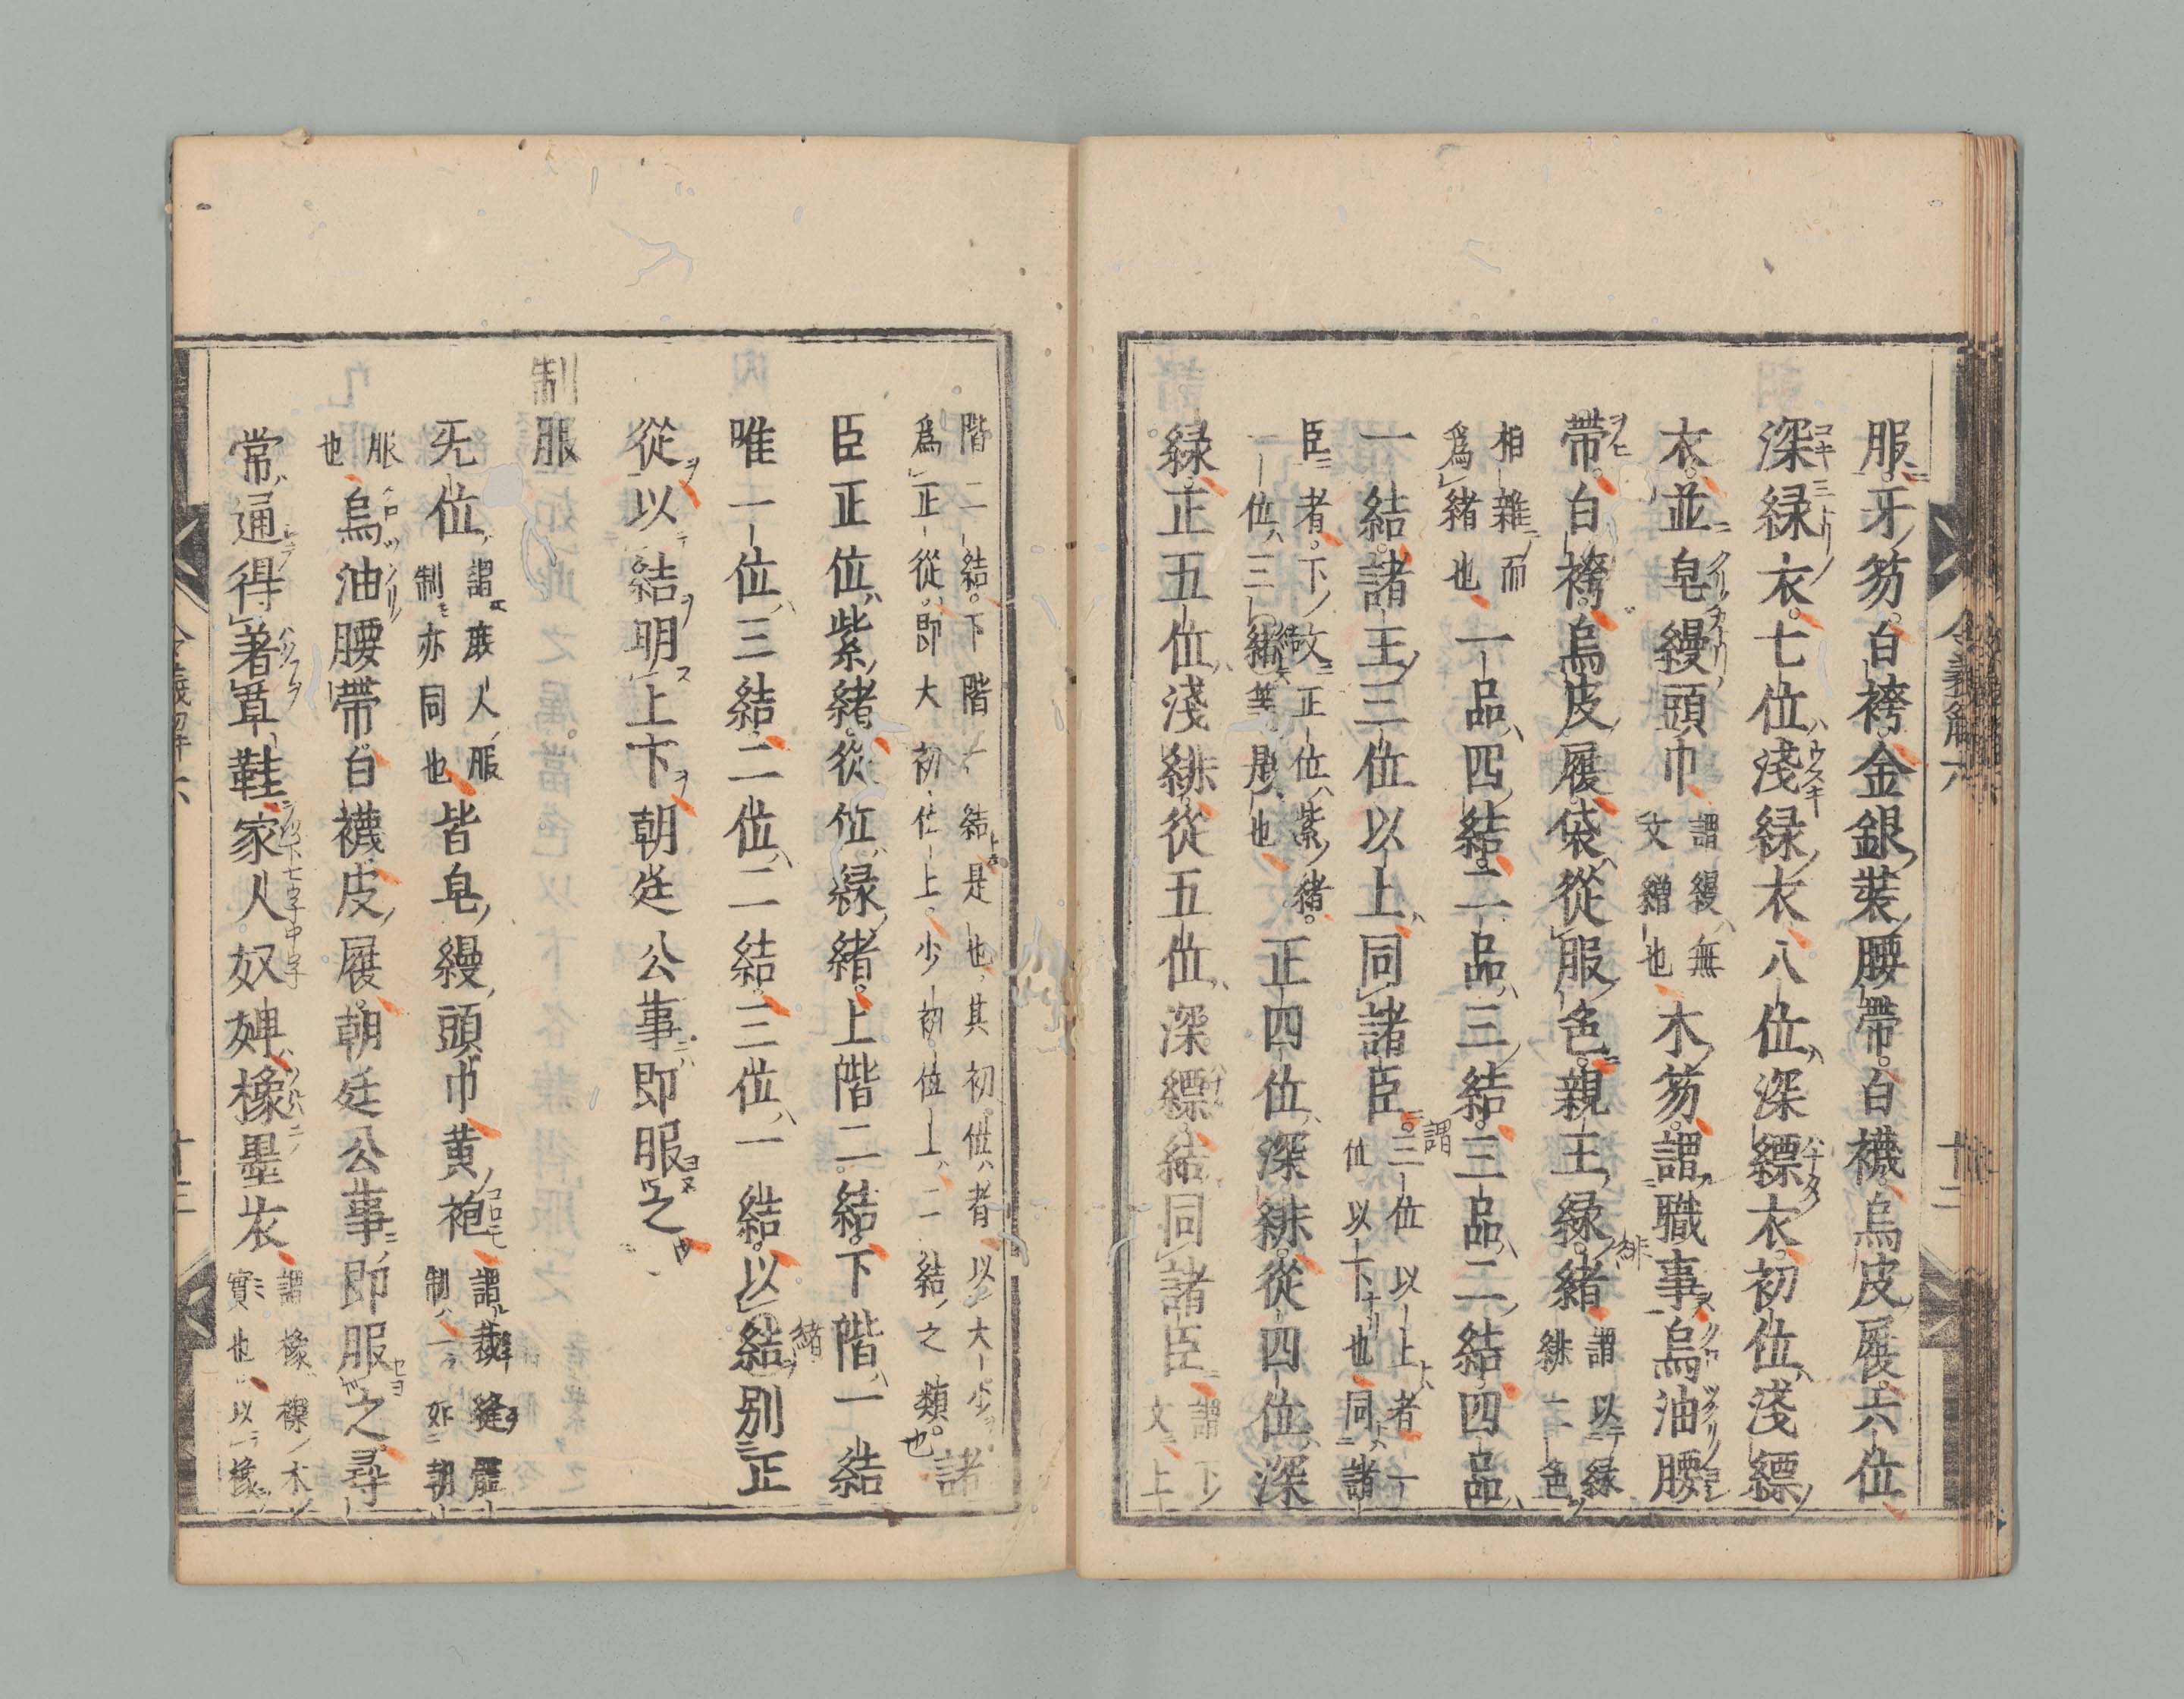 服牙笏白袴金銀裝腰帶白襪烏皮履六位
深緑衣七位淺緑衣八位深縹衣初位淺縹
衣並皂縵頭巾謂縵無文繒也木笏謂職事烏油腰
帶白袴烏皮履袋從服色親王緑緋緒謂以緑緋二色
相雜而爲緒也一品四結二品三結三品二結四品
一結諸王三位以上同諸臣謂三位以上者下位以下也同諸
臣者下文正位紫緒一位三結等是也正四位深緋從四位深
緑正五位淺緋從五位深縹結同諸臣謂下文上
階二結下階一結是也其初位者以大少
爲正從即大初位上少初位上二結之類也諸
臣正位紫緒從位緑緒上階二結下階一結
唯一位三結二位二結三位一結以緒結別正
從以結明上下朝廷公事即服之
制服
无位謂庶人服制亦同也皆皂縵頭巾黄袍謂裁縫體制一如朝
服也烏油腰帶白襪皮履朝廷公事即服之尋
常通得著草鞋家人奴婢橡墨衣謂橡櫟木實也以橡
令義解六
十二